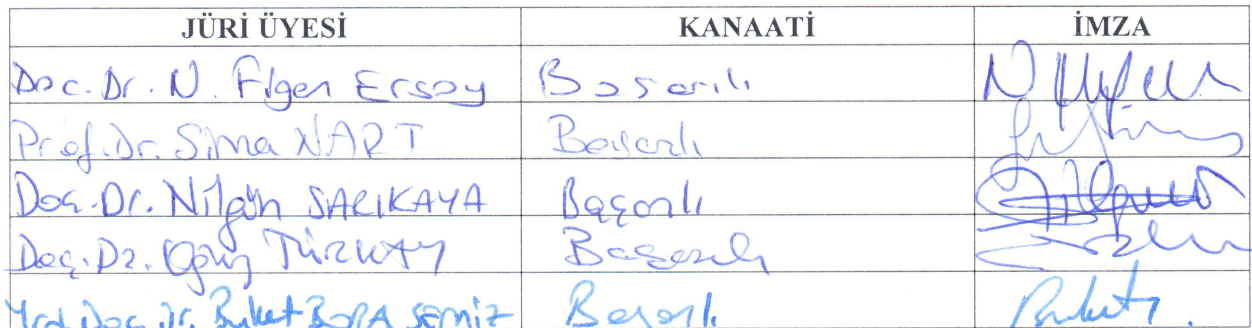 JÜRİ ÜYESİ KANAATİ İMZA
Doç. Dr. N. Figen Ersoy Başarılı
Prof. Dr. Sima NART Başarılı
Doç. Dr. Nilgün SARIKAYA Başarılı
Doç. Dr. Oğuz TÜRKAY Başarılı
Yrd. Doç. Dr. Buket BORA SEMİZ Başarılı